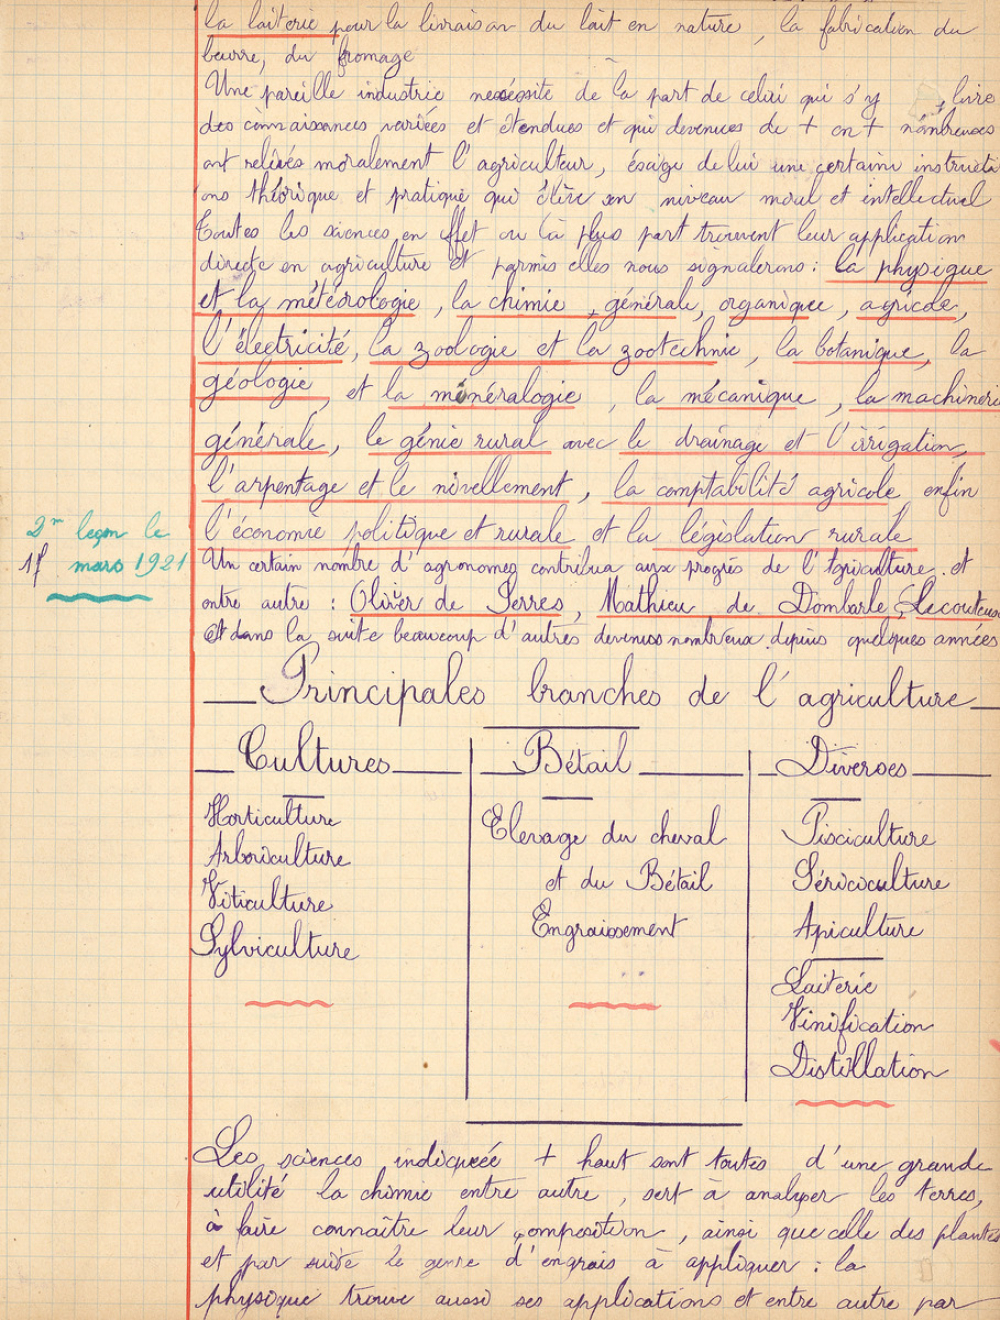 la laiterie pour la livraison du lait en nature, la fabrication du
beurre, du fromage
Une pareille industrie nécéssite de la part de celui qui s'y livre
des connaissances variées et étendues et qui devenues de + en + nombreuses
ont relevés moralement l'agriculteur, exige de lui une certaine instructi
ons théorique et pratique qui élève son niveau moral et intellectuel
Toutes les sciences en effet ou la plus part trouvent leur application
directe en agriculture et parmis elles nous signalerons : la physique
et la météorologie, la chimie, générale, organique, agricole,
l'électricité, la zoologie et la zootechnie, la botanique, la
géologie, et la minéralogie, la mécanique, la machinerie
générale, le génie rural avec le drainage et l'irrigation,
l'arpentage et le nivellement, la comptabilité agricole, enfin
2me leçon le
17 mars 1921
l'économie politique et rurale et la législation rurale
Un certain nombre d'agronomes contribua aux progrès de l'Agriculture. et
entre autre : Olivier de Serres, Mathieu de Dombasle, Lecouteux
et dans la suite beaucoup d'autres devenus nombreux depuis quelques années
Principales branches de l'agriculture
Cultures Bétail Diverses
Horticulture
Arboriculture
Viticulture
Sylviculture
Elevage du cheval
et du Bétail
Engraissement
Pisciculture
Sériciculture
Apiculture
Laiterie
Vinification
Distillation
Les sciences indiqueée + haut sont toutes d'une grande
utilité la chimie entre autre, sert à analyser les terres,
à faire connaître leur composition, ainsi que celle des plantes
et par suite le genre d'engrais à appliquer : la
physique trouve aussi ses applications et entre autre par